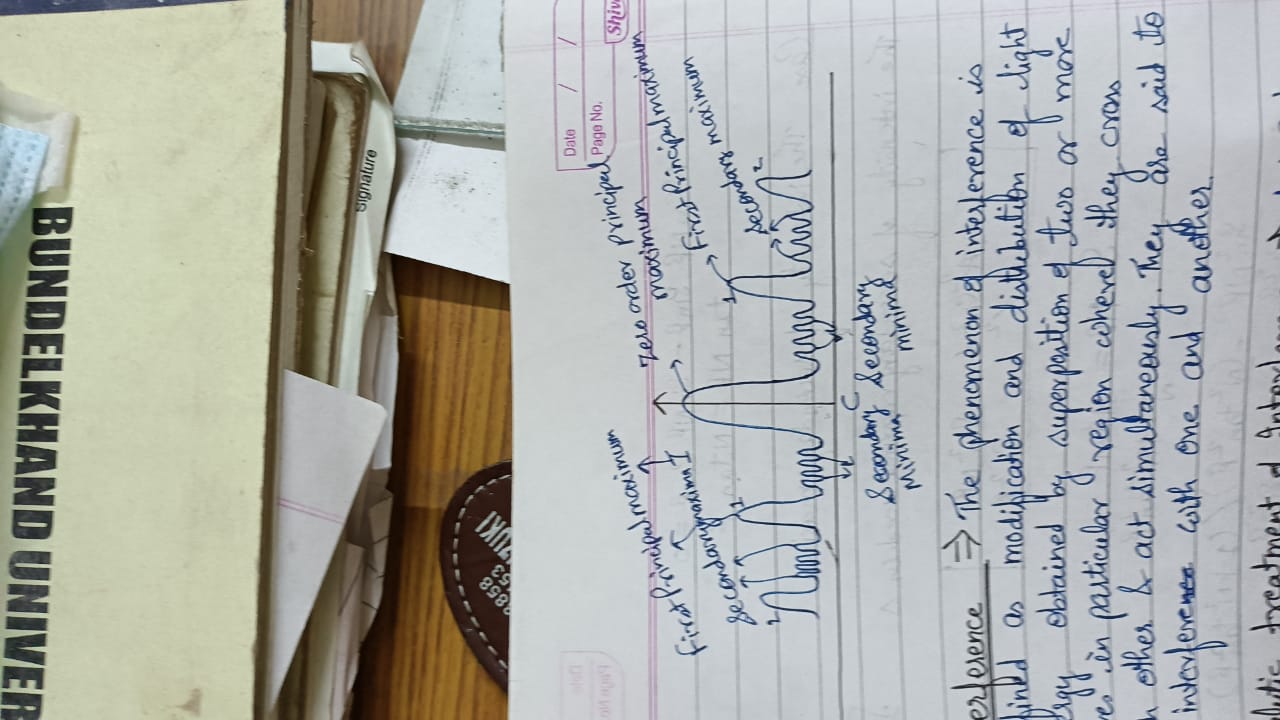 BUNDELKHAND UNIVER
Signature
Date / /
Page No.
Shiv
Zero order principal
maximum
First Principal maximum
First Principal maximum
Secondary maximum
Secondary maxima I
Secondary
2
1
1
2
C
Secondary
minima
Secondary
minima
erference ⇒ The phenomenon of interference is
fined as modification and distribution of light
ergy obtained by superposition of two or more
es in particular region where they cross
h other & act simultaneously. They are said to
interference with one and another.
8858